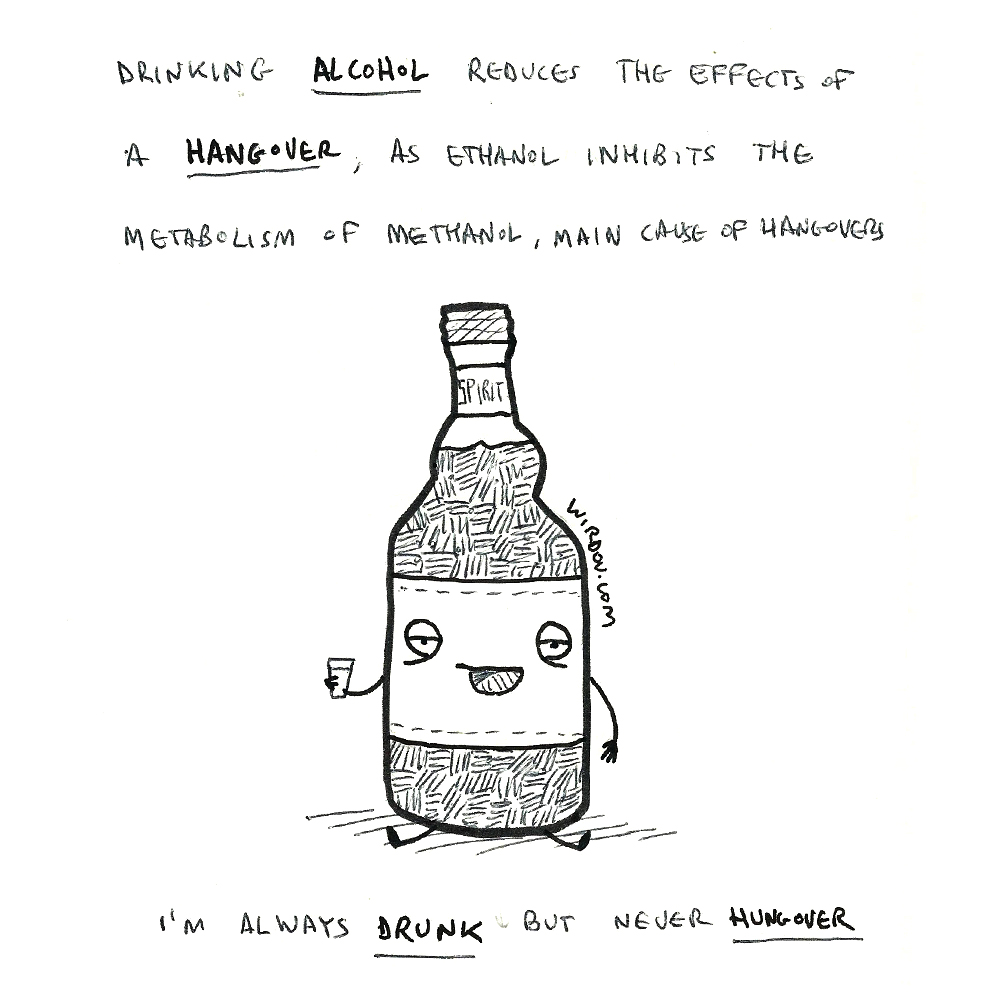 DRINKING ALCOHOL REDUCES THE EFFECTS OF
A HANGOVER, AS ETHANOL INHIBITS THE
METABOLISM OF METHANOL, MAIN CAUSE OF HANGOVERS
SPIRIT
WIRDOU.COM
I'M ALWAYS DRUNK BUT NEVER HUNGOVER